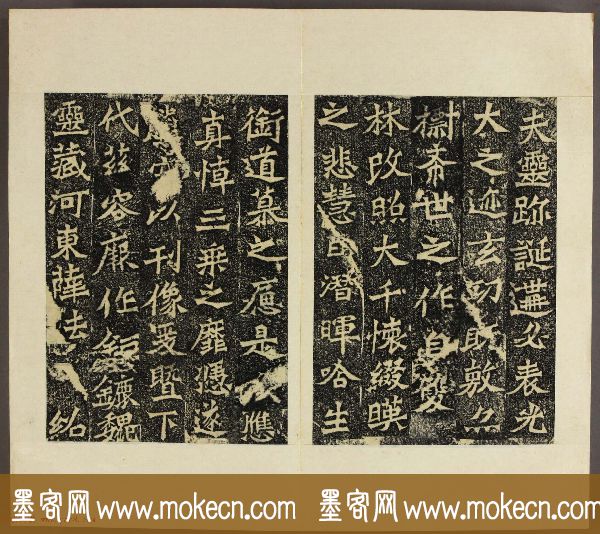 夫靈跡誕遘必表光
大之迹玄功既敷亦
摽希世之作自雙
林改照大千懷綴暎
之悲慧日潛暉哈生
銜道慕之痛是以應
真悼三乘之靡憑遂
空以刊像爰暨下
代茲容厥作鉅鏕魏
靈藏河東薛法紹
墨客网 www.mokecn.com 墨客网 www.mokecn.com